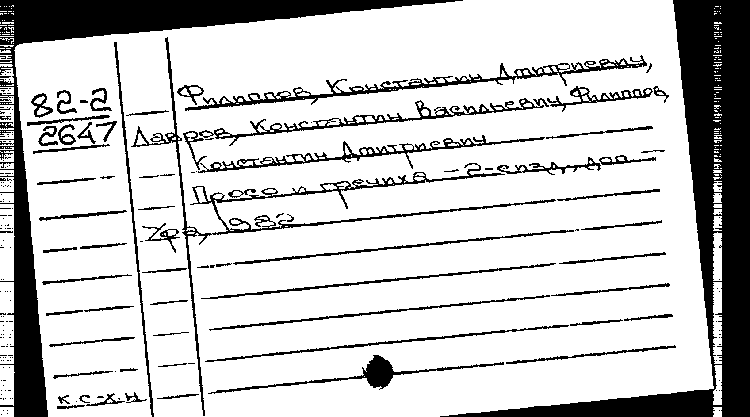 82-2
2647
Филиппов, Константин Дмитриевич,
Лавров, Константин Васильевич, Филиппов,
Константин Дмитриевич
Просо и гречиха - 2-е изд., доп -
Уфа, 1982
к.с-х.н